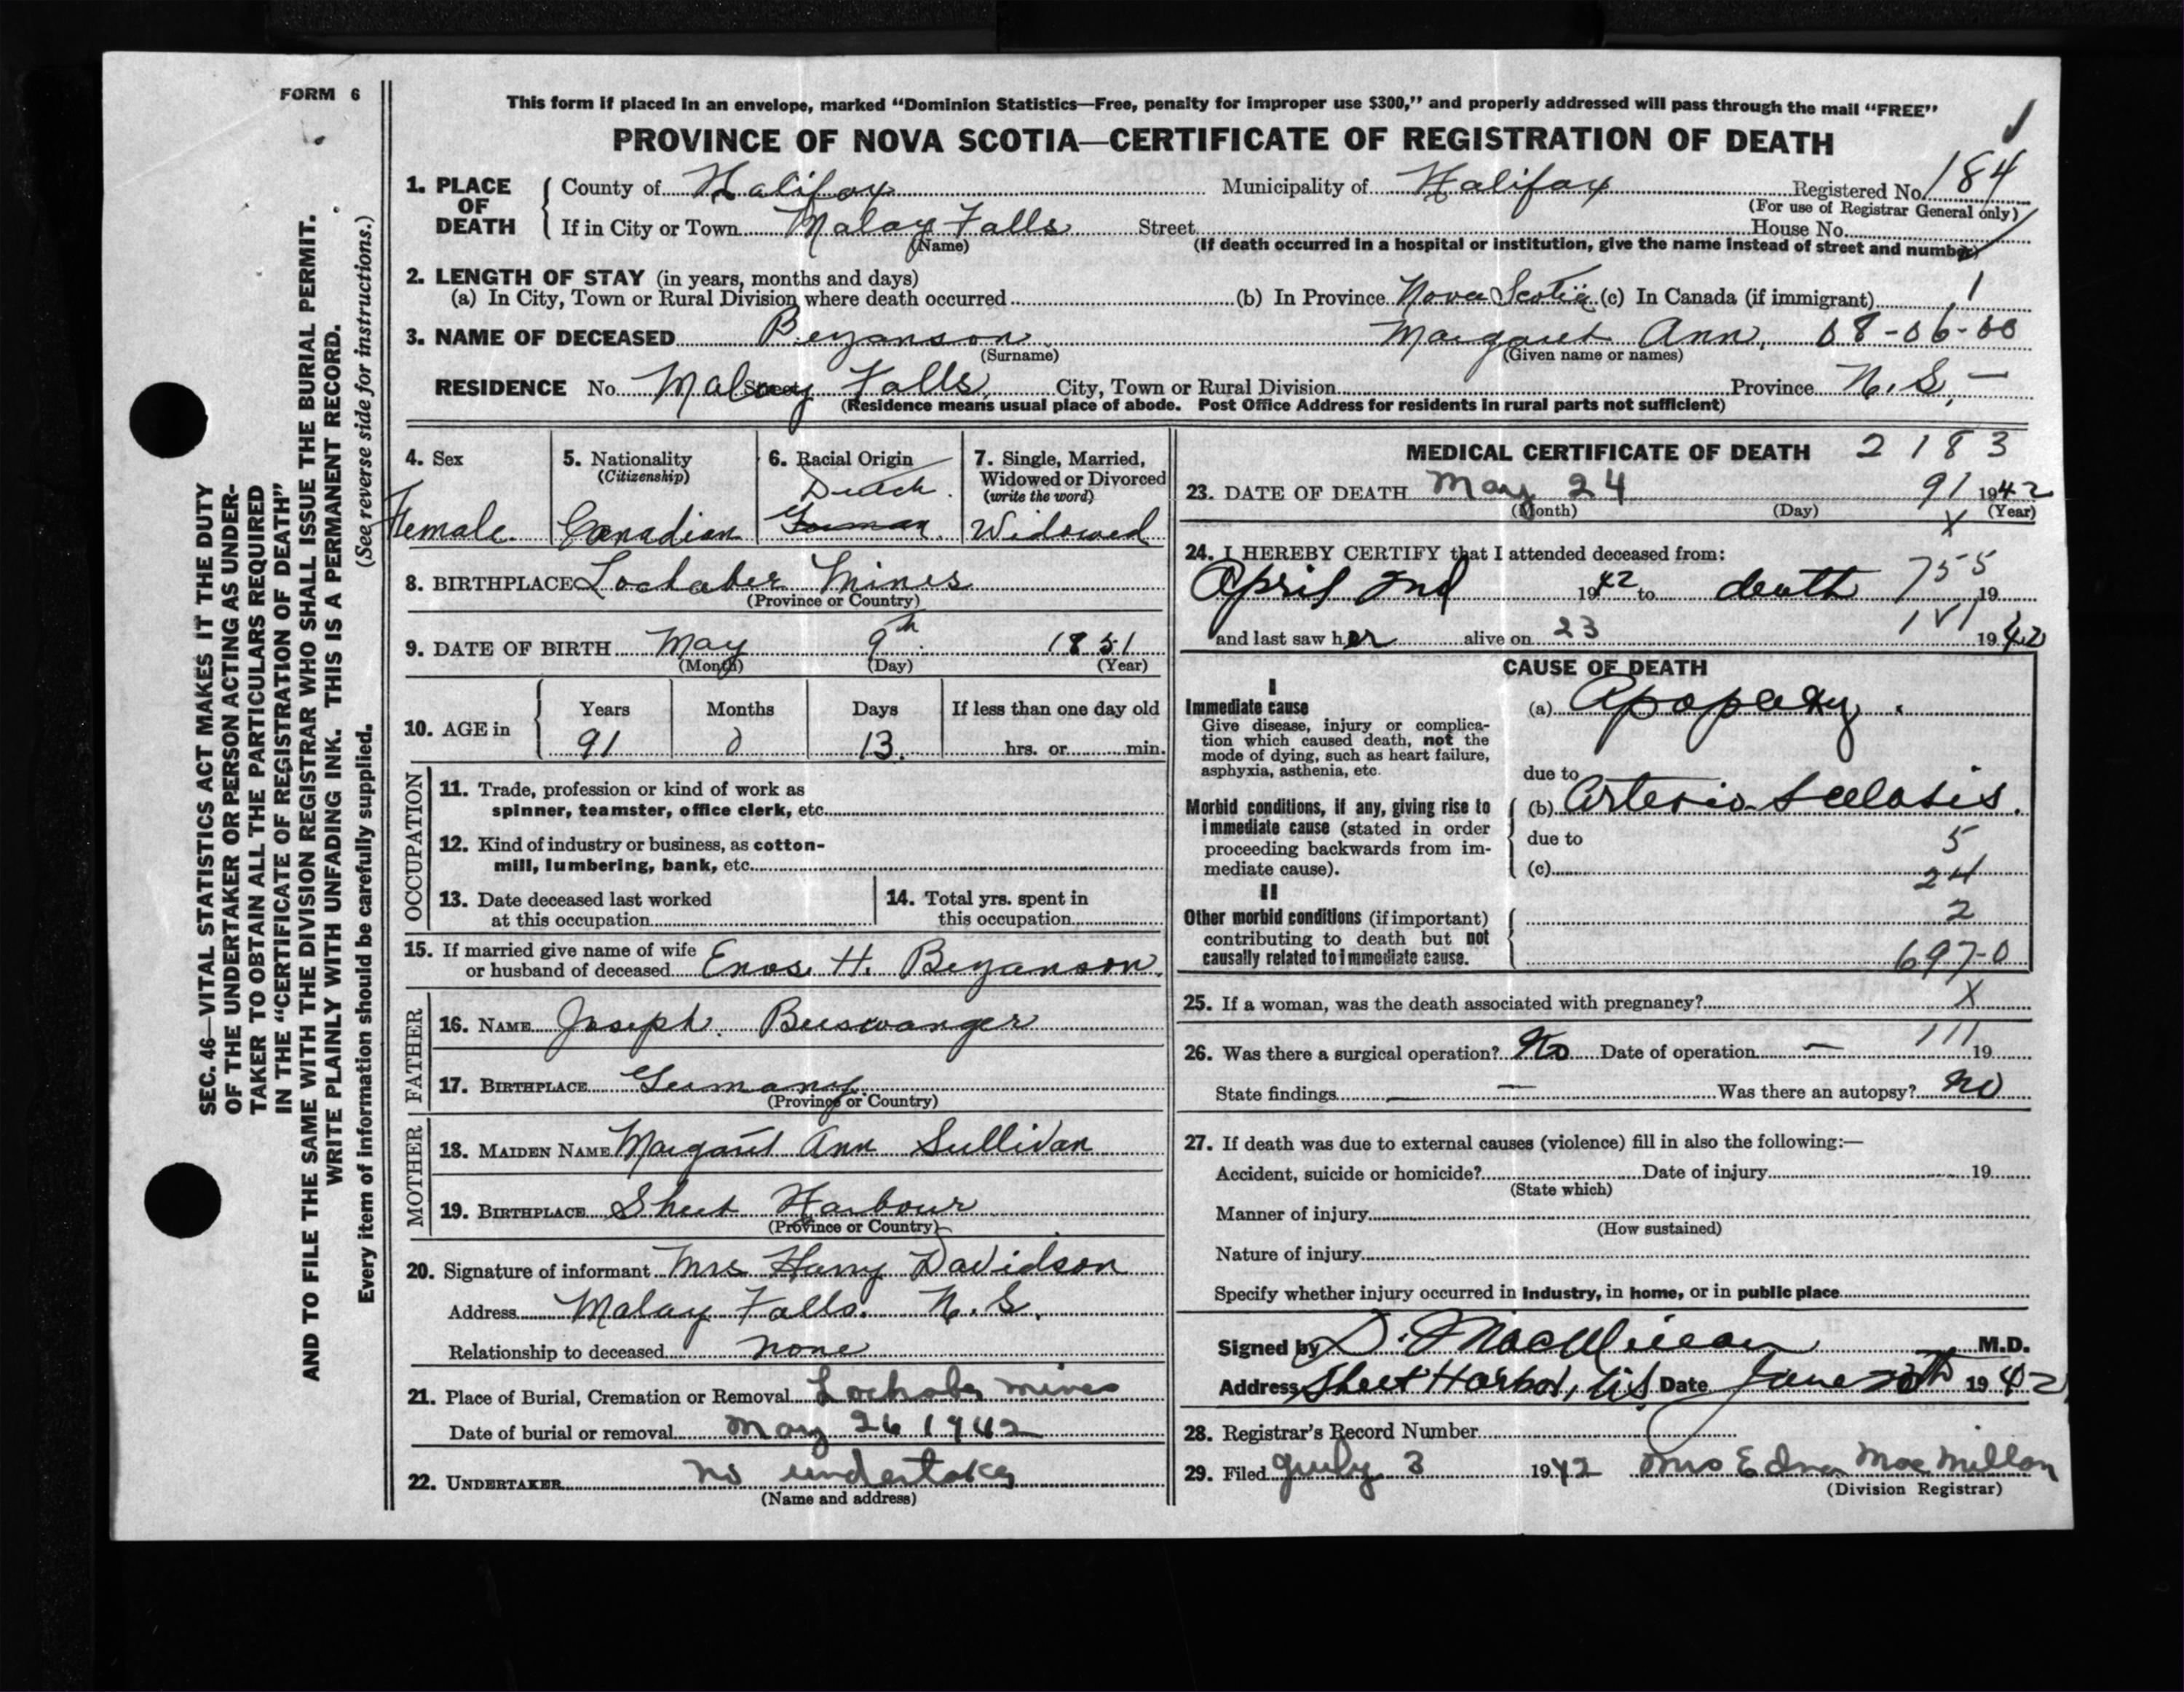 FORM 6
This form if placed in an envelope, marked “Dominion Statistics—Free, penalty for improper use $300,” and properly addressed will pass through the mail “FREE”
PROVINCE OF NOVA SCOTIA—CERTIFICATE OF REGISTRATION OF DEATH
1. PLACE OF DEATH County of Halifax Municipality of Halifax Registered No. 184
(For use of Registrar General only)
If in City or Town Malay Falls Street House No.
(Name) (If death occurred in a hospital or institution, give the name instead of street and number)
2. LENGTH OF STAY (in years, months and days)
(a) In City, Town or Rural Division where death occurred (b) In Province Nova Scotia (c) In Canada (if immigrant) 1
3. NAME OF DECEASED Bezanson Margaret Ann, 08-06-00
(Surname) (Given name or names)
RESIDENCE No. Malay Falls, Street City, Town or Rural Division Province N.S, —
(Residence means usual place of abode. Post Office Address for residents in rural parts not sufficient)
4. Sex 5. Nationality (Citizenship) 6. Racial Origin 7. Single, Married, Widowed or Divorced (write the word)
Dutch.
Female. Canadian German. Widowed
8. BIRTHPLACE Lochaber Mines
(Province or Country)
9. DATE OF BIRTH May 9th 1851
(Month) (Day) (Year)
10. AGE in Years Months Days If less than one day old
91 0 13. hrs. or min.
OCCUPATION
11. Trade, profession or kind of work as
spinner, teamster, office clerk, etc.
12. Kind of industry or business, as cotton-
mill, lumbering, bank, etc.
13. Date deceased last worked
at this occupation
14. Total yrs. spent in
this occupation
15. If married give name of wife
or husband of deceased Enos. H. Bezanson.
FATHER
16. NAME Joseph. Beiswanger
17. BIRTHPLACE Germany.
(Province or Country)
MOTHER
18. MAIDEN NAME Margaret Ann Sullivan
19. BIRTHPLACE Sheet Harbour
(Province or Country)
20. Signature of informant Mrs Harry Davidson
Address Malay Falls. N.S,
Relationship to deceased none
21. Place of Burial, Cremation or Removal Lochaber mines
Date of burial or removal May 26 1942
22. UNDERTAKER no undertaker
(Name and address)
MEDICAL CERTIFICATE OF DEATH 2183
23. DATE OF DEATH May 24 91 1942
(Month) (Day) (Year)
X
24. I HEREBY CERTIFY that I attended deceased from:
April 2nd 1942 to death 755 19
and last saw her alive on 23 1942
CAUSE OF DEATH
I
Immediate cause (a) Apoplexy.
Give disease, injury or complica-
tion which caused death, not the
mode of dying, such as heart failure,
asphyxia, asthenia, etc.
due to
Morbid conditions, if any, giving rise to (b) Arterio Sclosis.
immediate cause (stated in order
proceeding backwards from im-
mediate cause).
due to 5
(c) 24
II
Other morbid conditions (if important) 2
contributing to death but not
causally related to immediate cause. 697-0
25. If a woman, was the death associated with pregnancy? X
26. Was there a surgical operation? No Date of operation — 111 19
State findings — — Was there an autopsy? no
27. If death was due to external causes (violence) fill in also the following:—
Accident, suicide or homicide? Date of injury 19
(State which)
Manner of injury
(How sustained)
Nature of injury
Specify whether injury occurred in Industry, in home, or in public place
Signed by D. MacMillan M.D.
Address Sheet Harbor, N.S. Date June 1942
28. Registrar's Record Number
29. Filed July 3 1942 Mrs Edna MacMillan
(Division Registrar)
SEC. 46—VITAL STATISTICS ACT MAKES IT THE DUTY
OF THE UNDERTAKER OR PERSON ACTING AS UNDER-
TAKER TO OBTAIN ALL THE PARTICULARS REQUIRED
IN THE “CERTIFICATE OF REGISTRATION OF DEATH”
AND TO FILE THE SAME WITH THE DIVISION REGISTRAR WHO SHALL ISSUE THE BURIAL PERMIT.
WRITE PLAINLY WITH UNFADING INK. THIS IS A PERMANENT RECORD.
Every item of information should be carefully supplied. (See reverse side for instructions.)